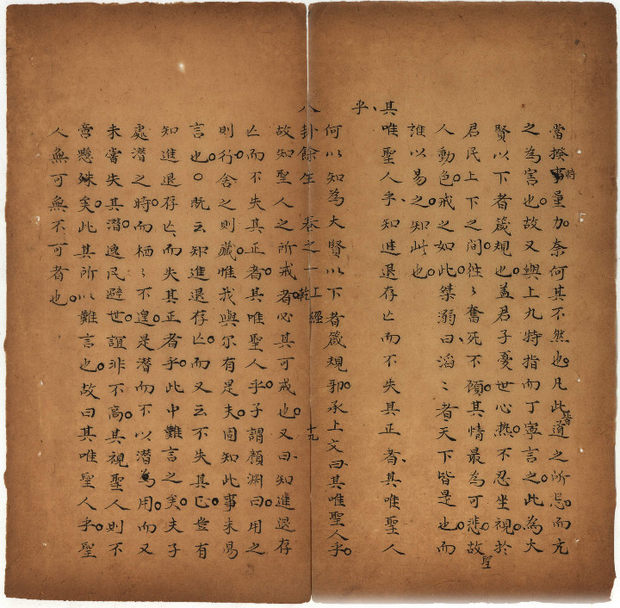 當揆事時量加奈何其不然也凡此皆道之所忌而亢
之為害也故又與上九特指而丁寧言之此為大
賢以下者箴規也蓋君子憂世心熱不忍坐視於
君民上下之間往々奮死不顧其情最為可悲故聖
人動色戒之如此桀溺曰滔々者天下皆是也而
誰以易之知此也
其唯聖人乎知進退存亡而不失其正者其唯聖人
乎
何以知為大賢以下者箴規耶承上文曰其唯聖人乎
八卦餘生 卷之一 上經 乾 十九
故知聖人之所戒者必其可戒也又曰知進退存
亡而不失其正者其唯聖人乎子謂顏淵曰用之
則行舍之則藏唯我與尔有是夫固知此事未易
言也○既云知進退存亡而又云不失其已豈有
知進退存亡而失其正者乎此中難言之矣夫子
處潛之時而栖々不遑是潛而不以潛為用而又
未嘗失其潛逸民避世誼非不高其視聖人則不
啻懸殊矣此其所以難言也故曰其唯聖人乎聖
人無可無不可者也